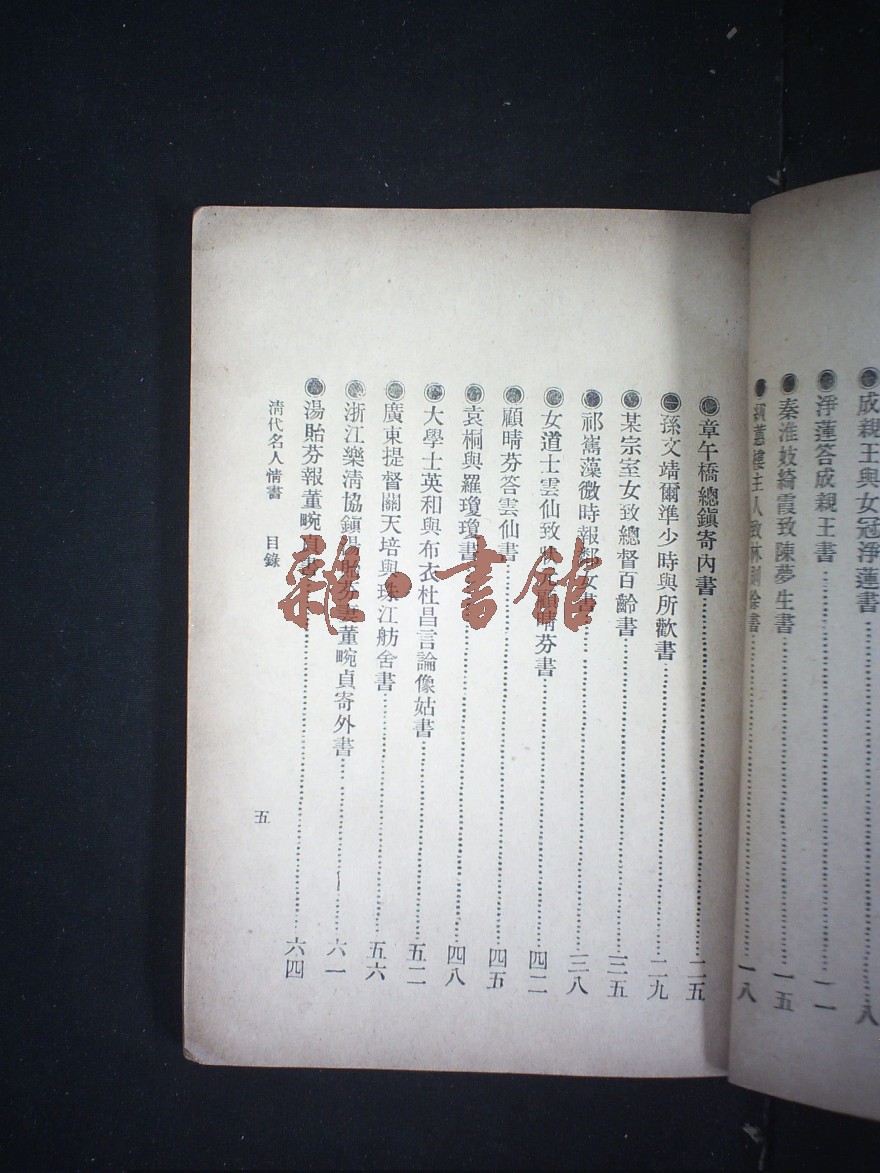 成親王與女冠淨蓮書……八
淨蓮答成親王書……一一
秦淮妓綺霞致陳夢生書……一五
蕙樓主人致林則徐書……一八
章午橋總鎮寄內書……二五
孫文靖爾準少時與所歡書……二九
某宗室女致總督百齡書……三五
祁寯藻微時報鄰女書……三八
女道士雲仙致 晴芬書……四二
顧晴芬答雲仙書……四五
袁桐與羅瓊瓊書……四八
大學士英和與布衣杜昌言論像姑書……五二
廣東提督關天培與珠江舫舍書……五六
浙江樂清協鎮湯貽芬妻董畹貞寄外書……六一
湯貽芬報董畹貞書……六四
清代名人情書 目錄
五
雜·書館